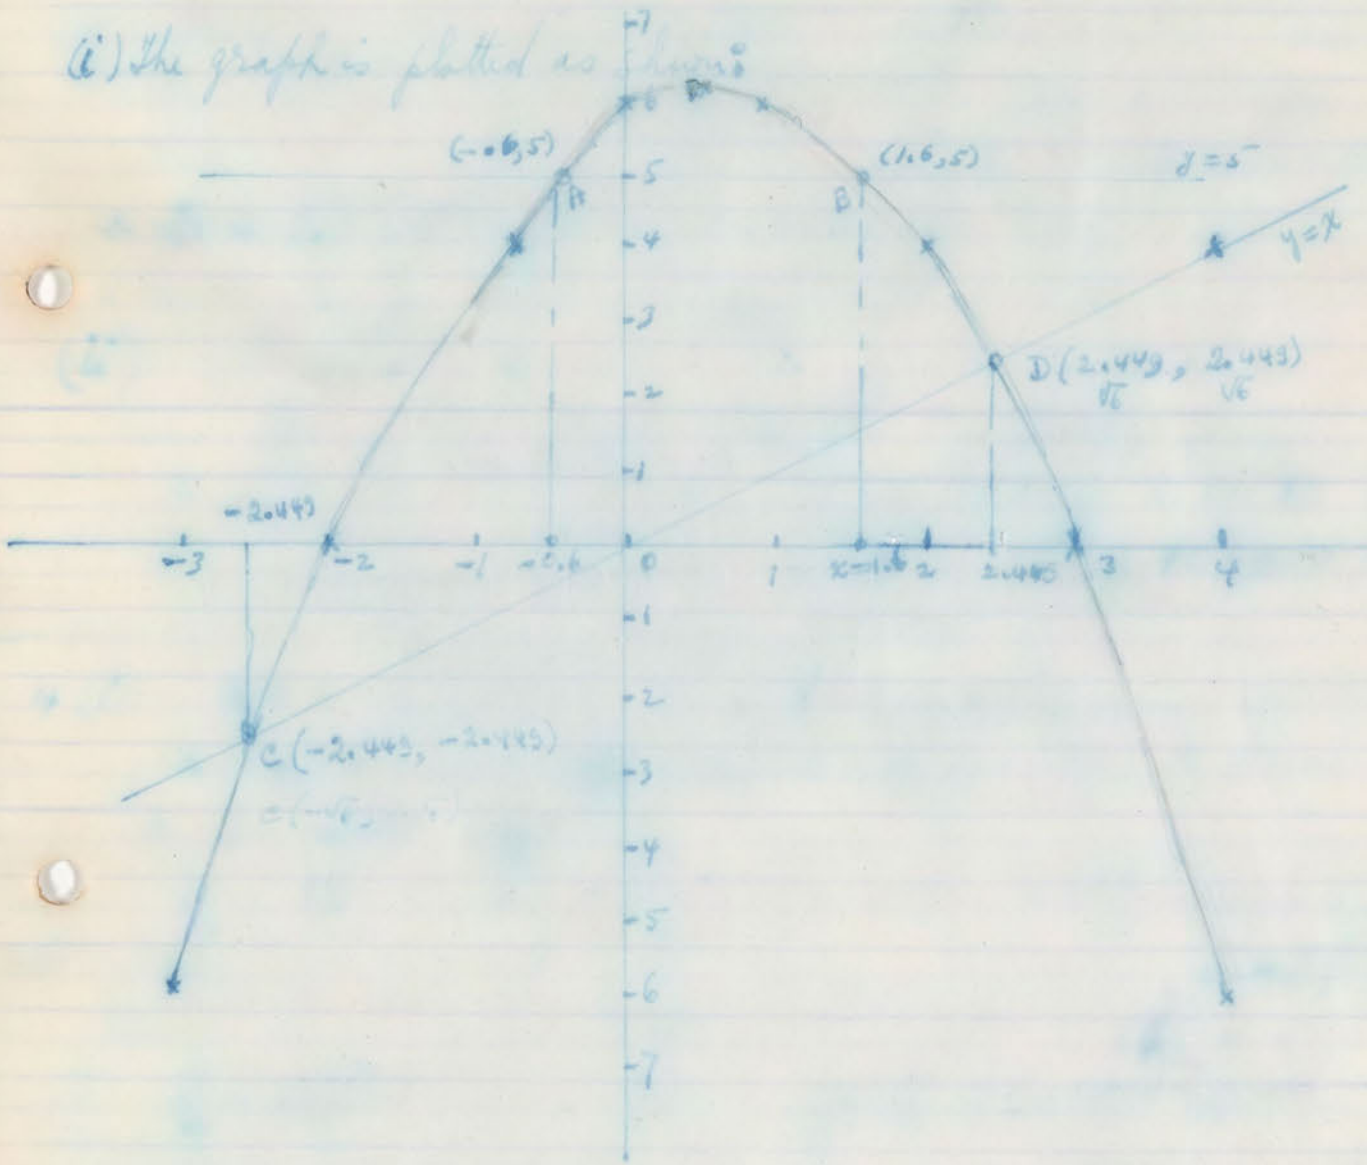 (i) The graph is plotted as shown:
7
6
(-.6,5)
5
(1.6,5)
y=5
A
B
4
y=x
3
D(2.449, 2.449)
√6 √6
2
1
-2.449
-3 -2 -1 -0.6 0 1 x=1.6 2 2.445 3 4
-1
-2
C(-2.449, -2.449)
-3
-4
-5
-6
-7